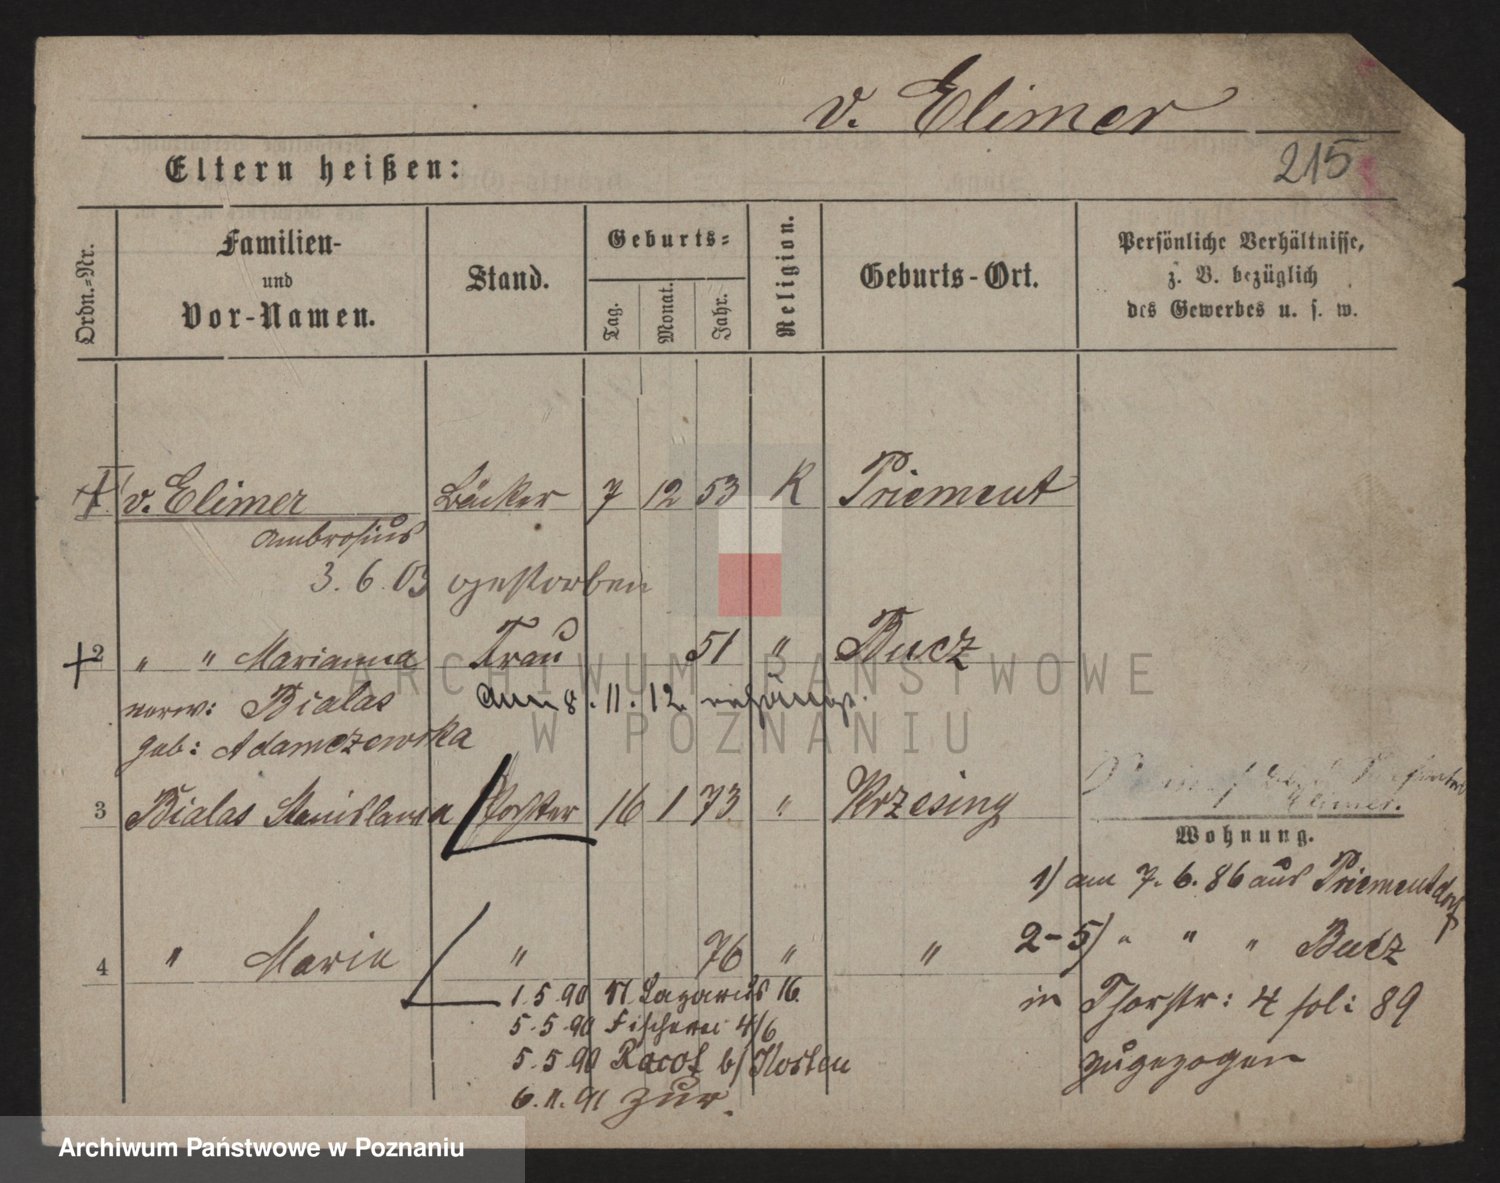 v. Elimer
215
Eltern heißen:
Ordn.-Nr.
Familien-
und
Vor-Namen.
Stand.
Geburts-
Tag.
Monat.
Jahr.
Religion.
Geburts-Ort.
Persönliche Verhältnisse,
z. B. bezüglich
des Gewerbes u. s. w.
v. Elimer Bäcker 7 12 53 K Priement
Ambrosius
3. 6. 03 gestorben
2 " " Marianna Frau 51 " Bucz
verw: Bialas am 8. 11. 12
geb: Adamczewska
3 Bialas Stanislawa Tochter 16 1 73 " Krzesing
Elimer.
Wohnung.
1) am 7. 6. 86 aus Priementdorf
4 " Marie " 76 " "
2-5) " " " Bucz
1. 5. 90 St Lazarus 16.
in Thorstr: 4 fol: 89
5. 5. 90 Fischerei 4/6
5. 5. 90 Racot b/ Kosten
zugezogen
6. 11. 91 zur.
ARCHIWUM PAŃSTWOWE
W POZNANIU
Archiwum Państwowe w Poznaniu